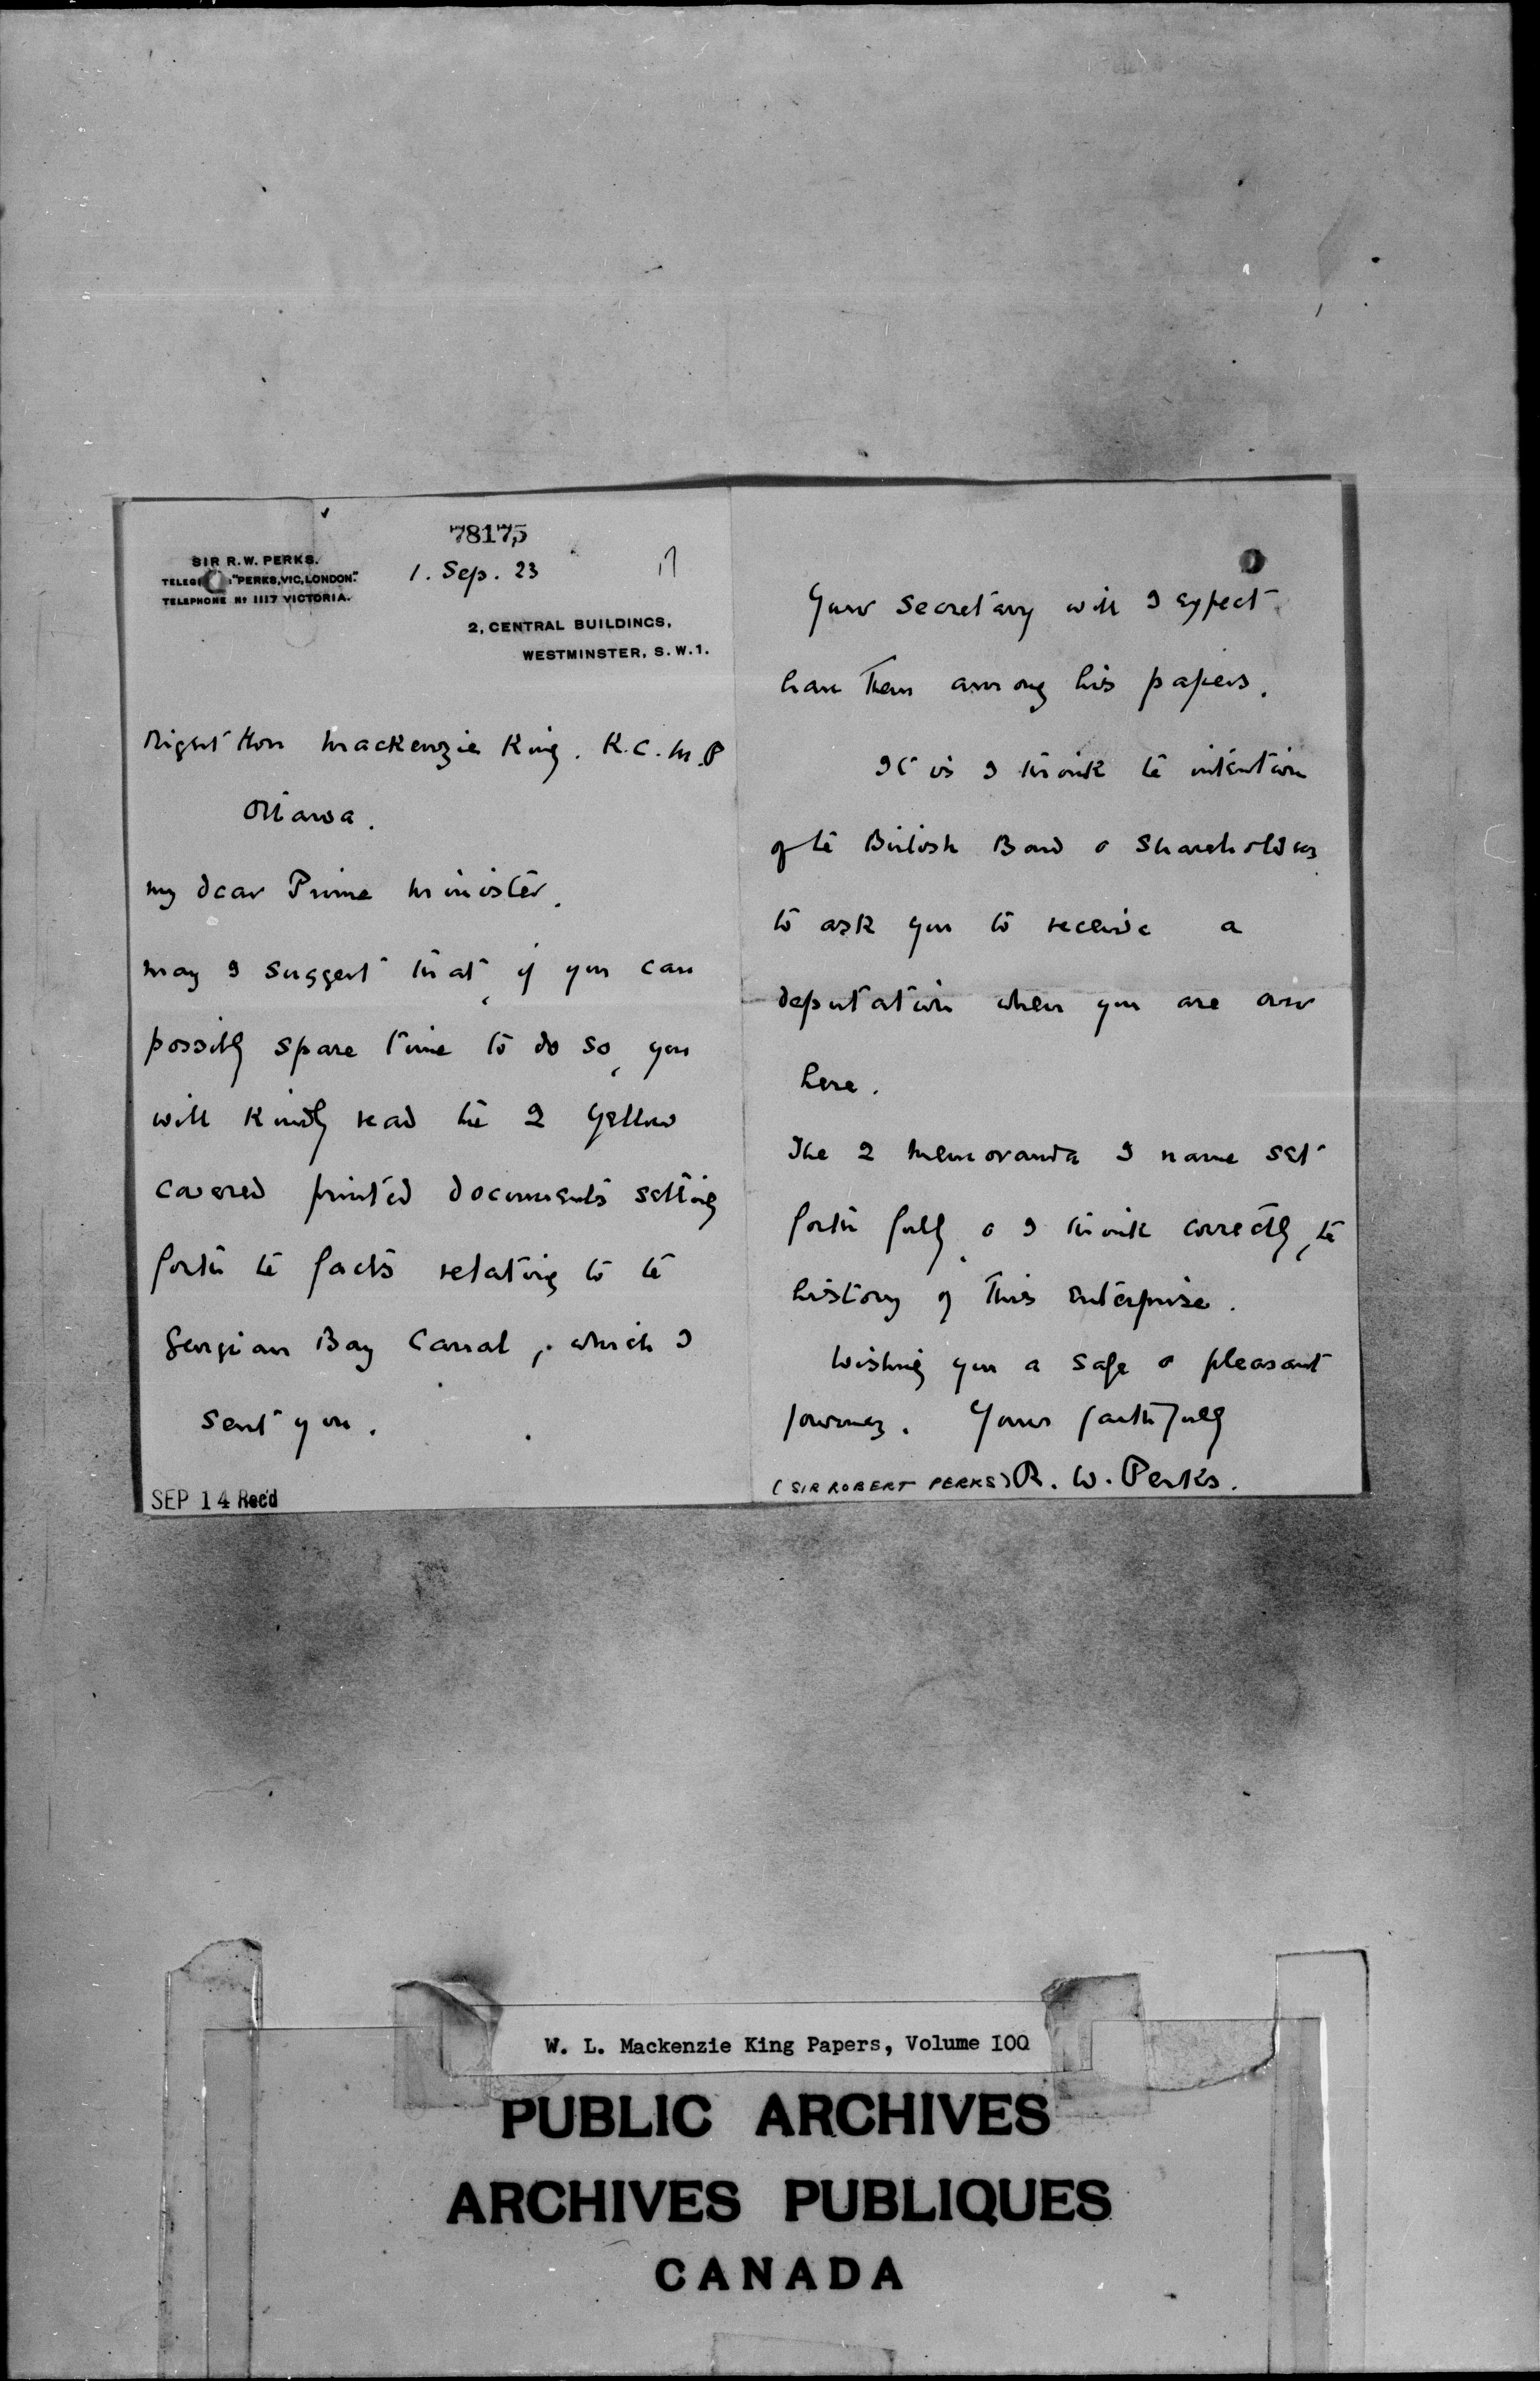 78175
SIR R.W. PERKS.
"PERKS, VIC, LONDON."
TELEPHONE No 1117 VICTORIA.
1. Sep. 23
2, CENTRAL BUILDINGS,
WESTMINSTER, S.W.1.
Right Hon Mackenzie King. K.C. M.P
Ottawa.
My dear Prime Minister,
May I suggest that, if you can
possibly spare time to do so, you
will kindly read the 2 yellow
covered printed documents setting
forth the facts relating to the
Georgian Bay Canal, which I
sent you.
SEP 14 Rec'd
Your Secretary will I expect
have them among his papers.
It is I think the intention
of the British Board & Shareholders
to ask you to receive a
deputation when you are over
here.
The 2 memoranda I name set
forth fully, & I think correctly, the
history of this enterprise.
Wishing you a safe & pleasant
journey. Yours faithfully
(SIR ROBERT PERKS) R. W. Perks.
W. L. Mackenzie King Papers, Volume I00
PUBLIC ARCHIVES
ARCHIVES PUBLIQUES
CANADA